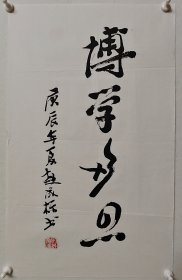 博学多思
庚辰年夏
书